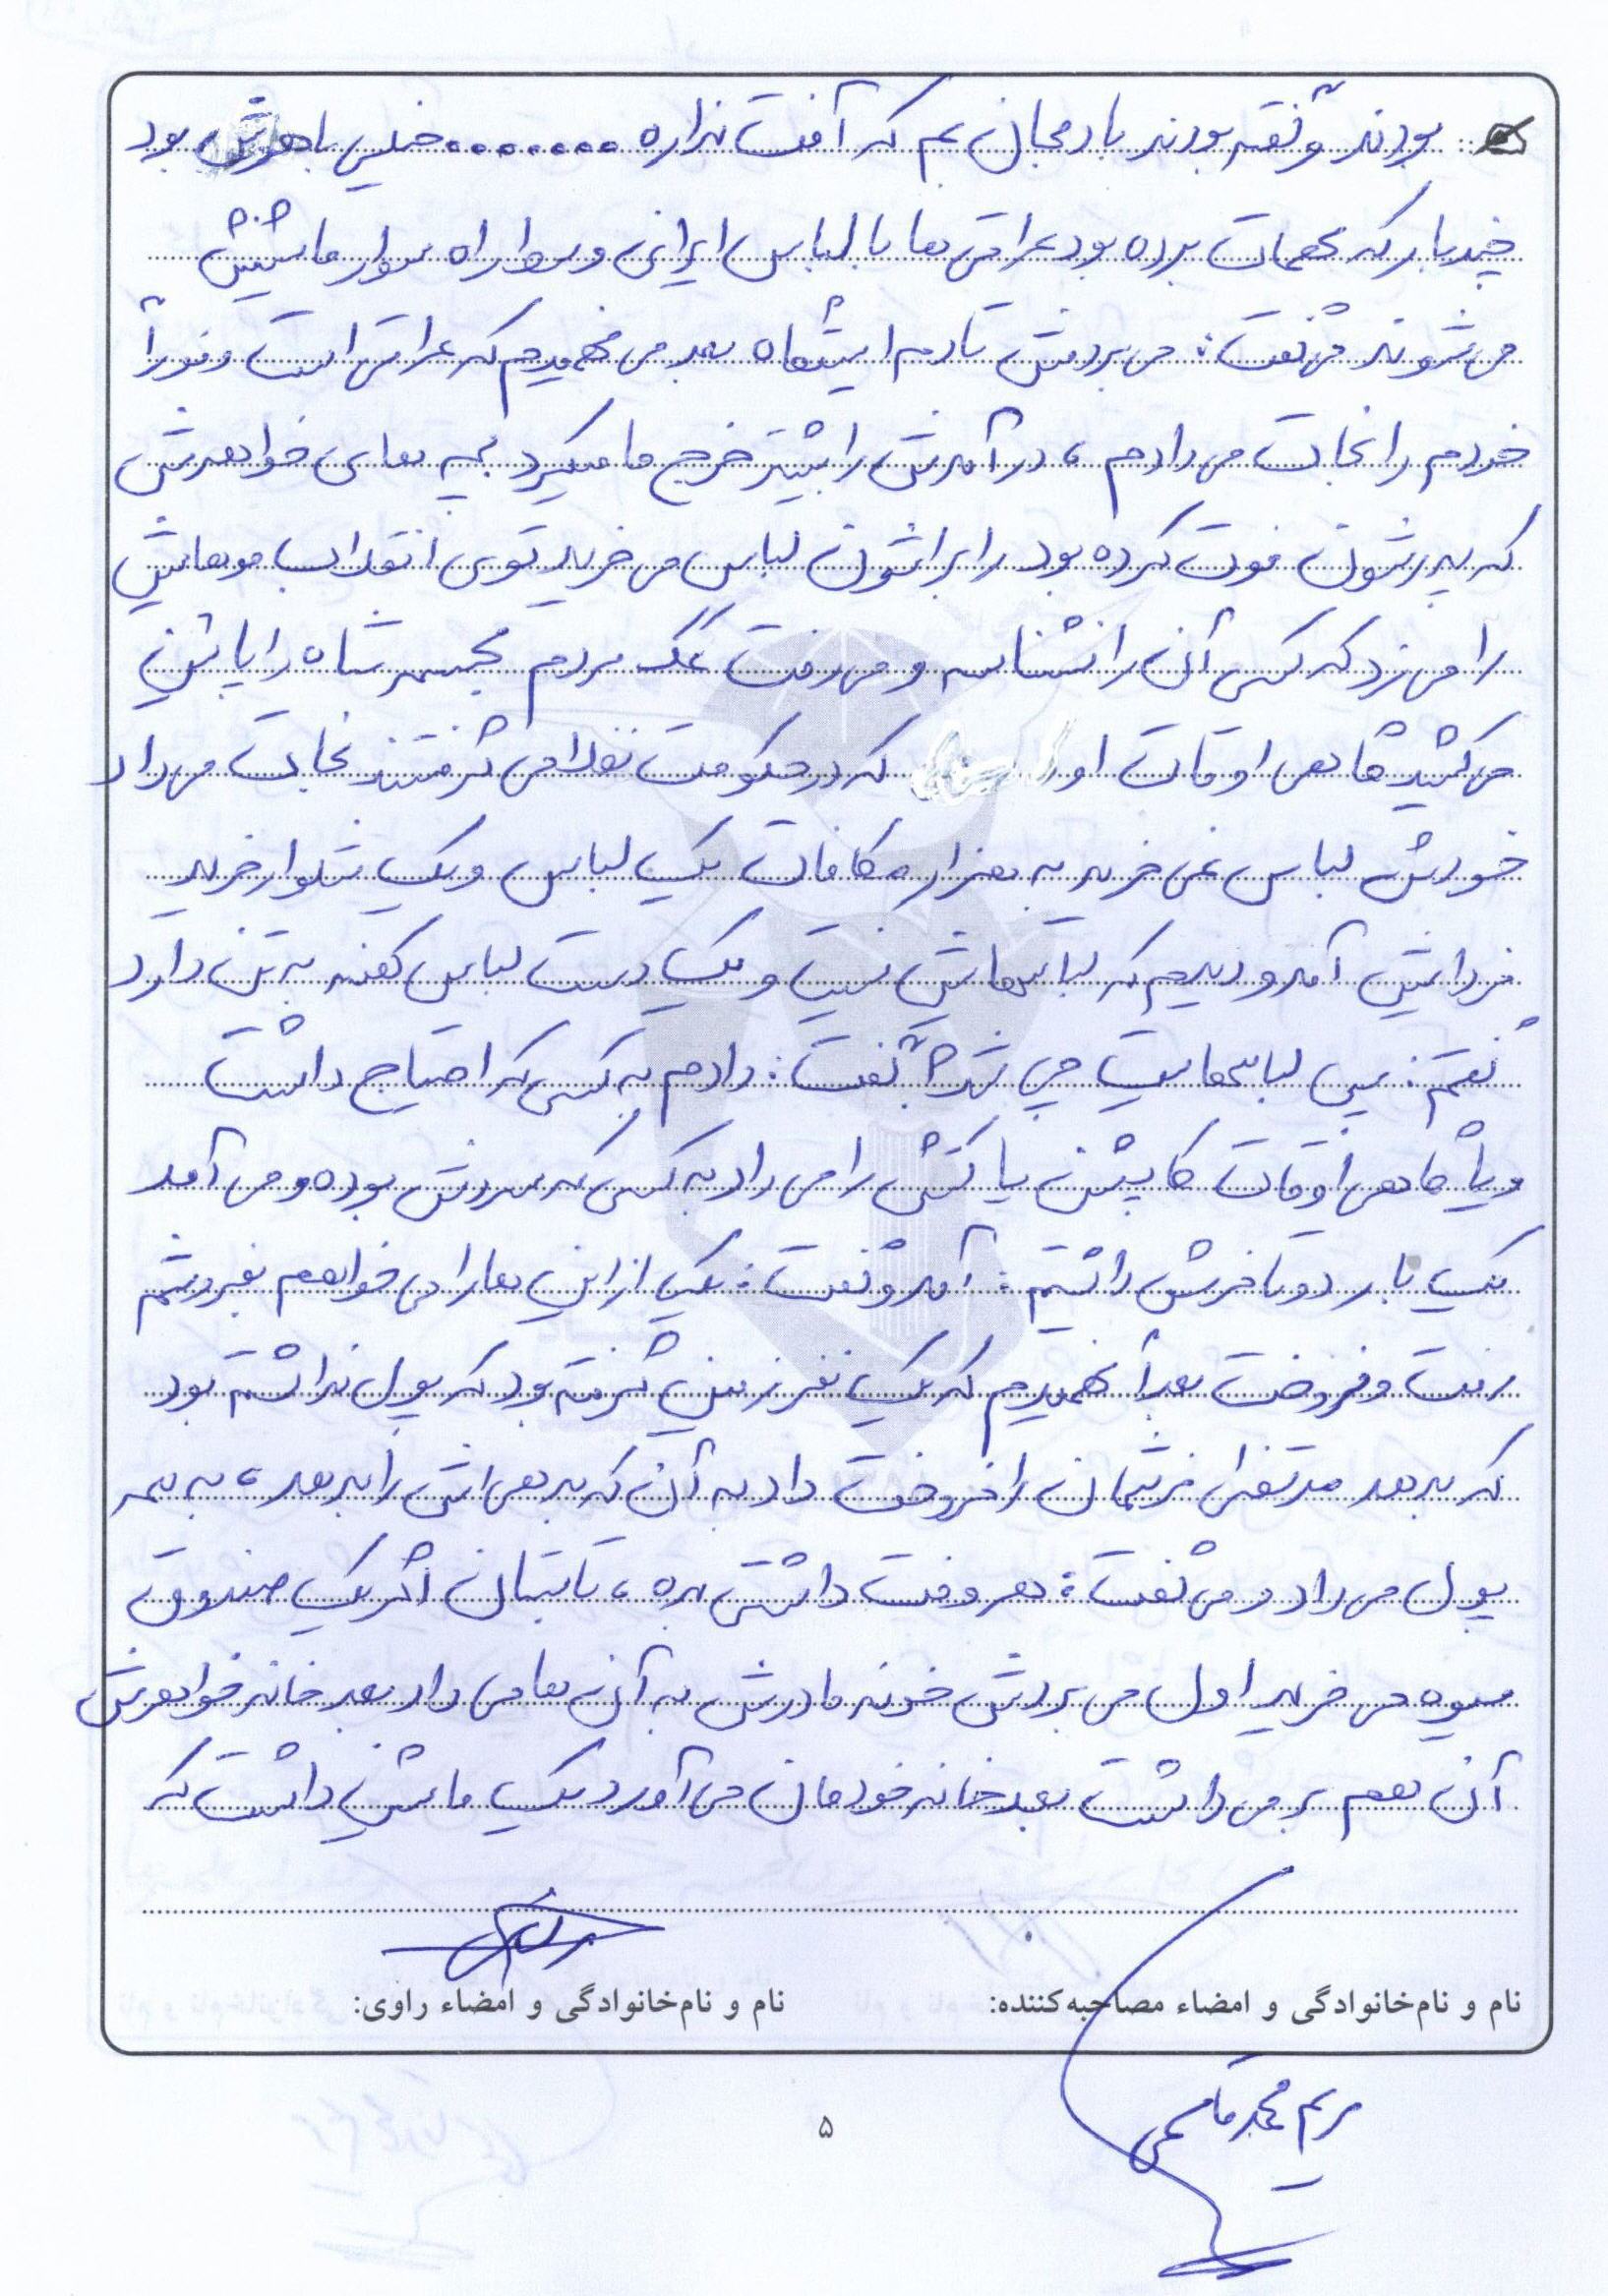 بودند و گفته بودند بادمجان بم که آفت نداره ........ خیلی باهوش بود
چند بار که مهمات برده بود عراقی ها با لباس ایرانی وسط راه سوار ماشینش
می شوند می گفت: می بردمش تا دم ایستگاه بعد می فهمیدم که عراقی است و فوراً
خودم را نجات می دادم، درآمدش را بیشتر خرج ما میکرد بچه های خواهرش
که پدرشون فوت کرده بود را براشون لباس می خرید توی انقلاب موهایش
را می زد که کسی آن را نشناسه و می رفت کمک مردم مجسمه شاه را پائین
می کشید گاهی اوقات اون که در حکومت نظامی گرفتند نجات می داد
خودش لباس نمی خرید به هزار مکافات یک لباس و یک شلوار خرید
فردایش آمد و دیدیم که لباسهایش نیست و یک دست لباس کهنه به تن دارد
گفتم: پس لباسهایت چی شد؟ گفت: دادم به کسی که احتیاج داشت
و یا گاهی اوقات کاپشن یا کتش را می داد به کسی که سردش بوده و می آمد
یک بار دو تا فرش داشتیم: آمد و گفت: یکی از این ها را می خواهم بفروشم
رفت و فروخت بعداً فهمیدیم که یک نفر زمین گرفته بود که پول نداشته بود
که بدهد مرتضی فرشمان را فروخت داد به آن که بدهی اش را بدهد، به همه
پول می داد و می گفت: هر وقت داشتی بده، تابستان اگر یک صندوق
میوه می خرید اول می بردش خونه مادرش به آن ها می داد بعد خانه خواهرش
آن هم بر می داشت بعد خانه خودمان می آورد یک ماشین داشت که
نام و نام‌خانوادگی و امضاء مصاحبه‌کننده: نام و نام‌خانوادگی و امضاء راوی:
مریم محمدقاسمی
۵